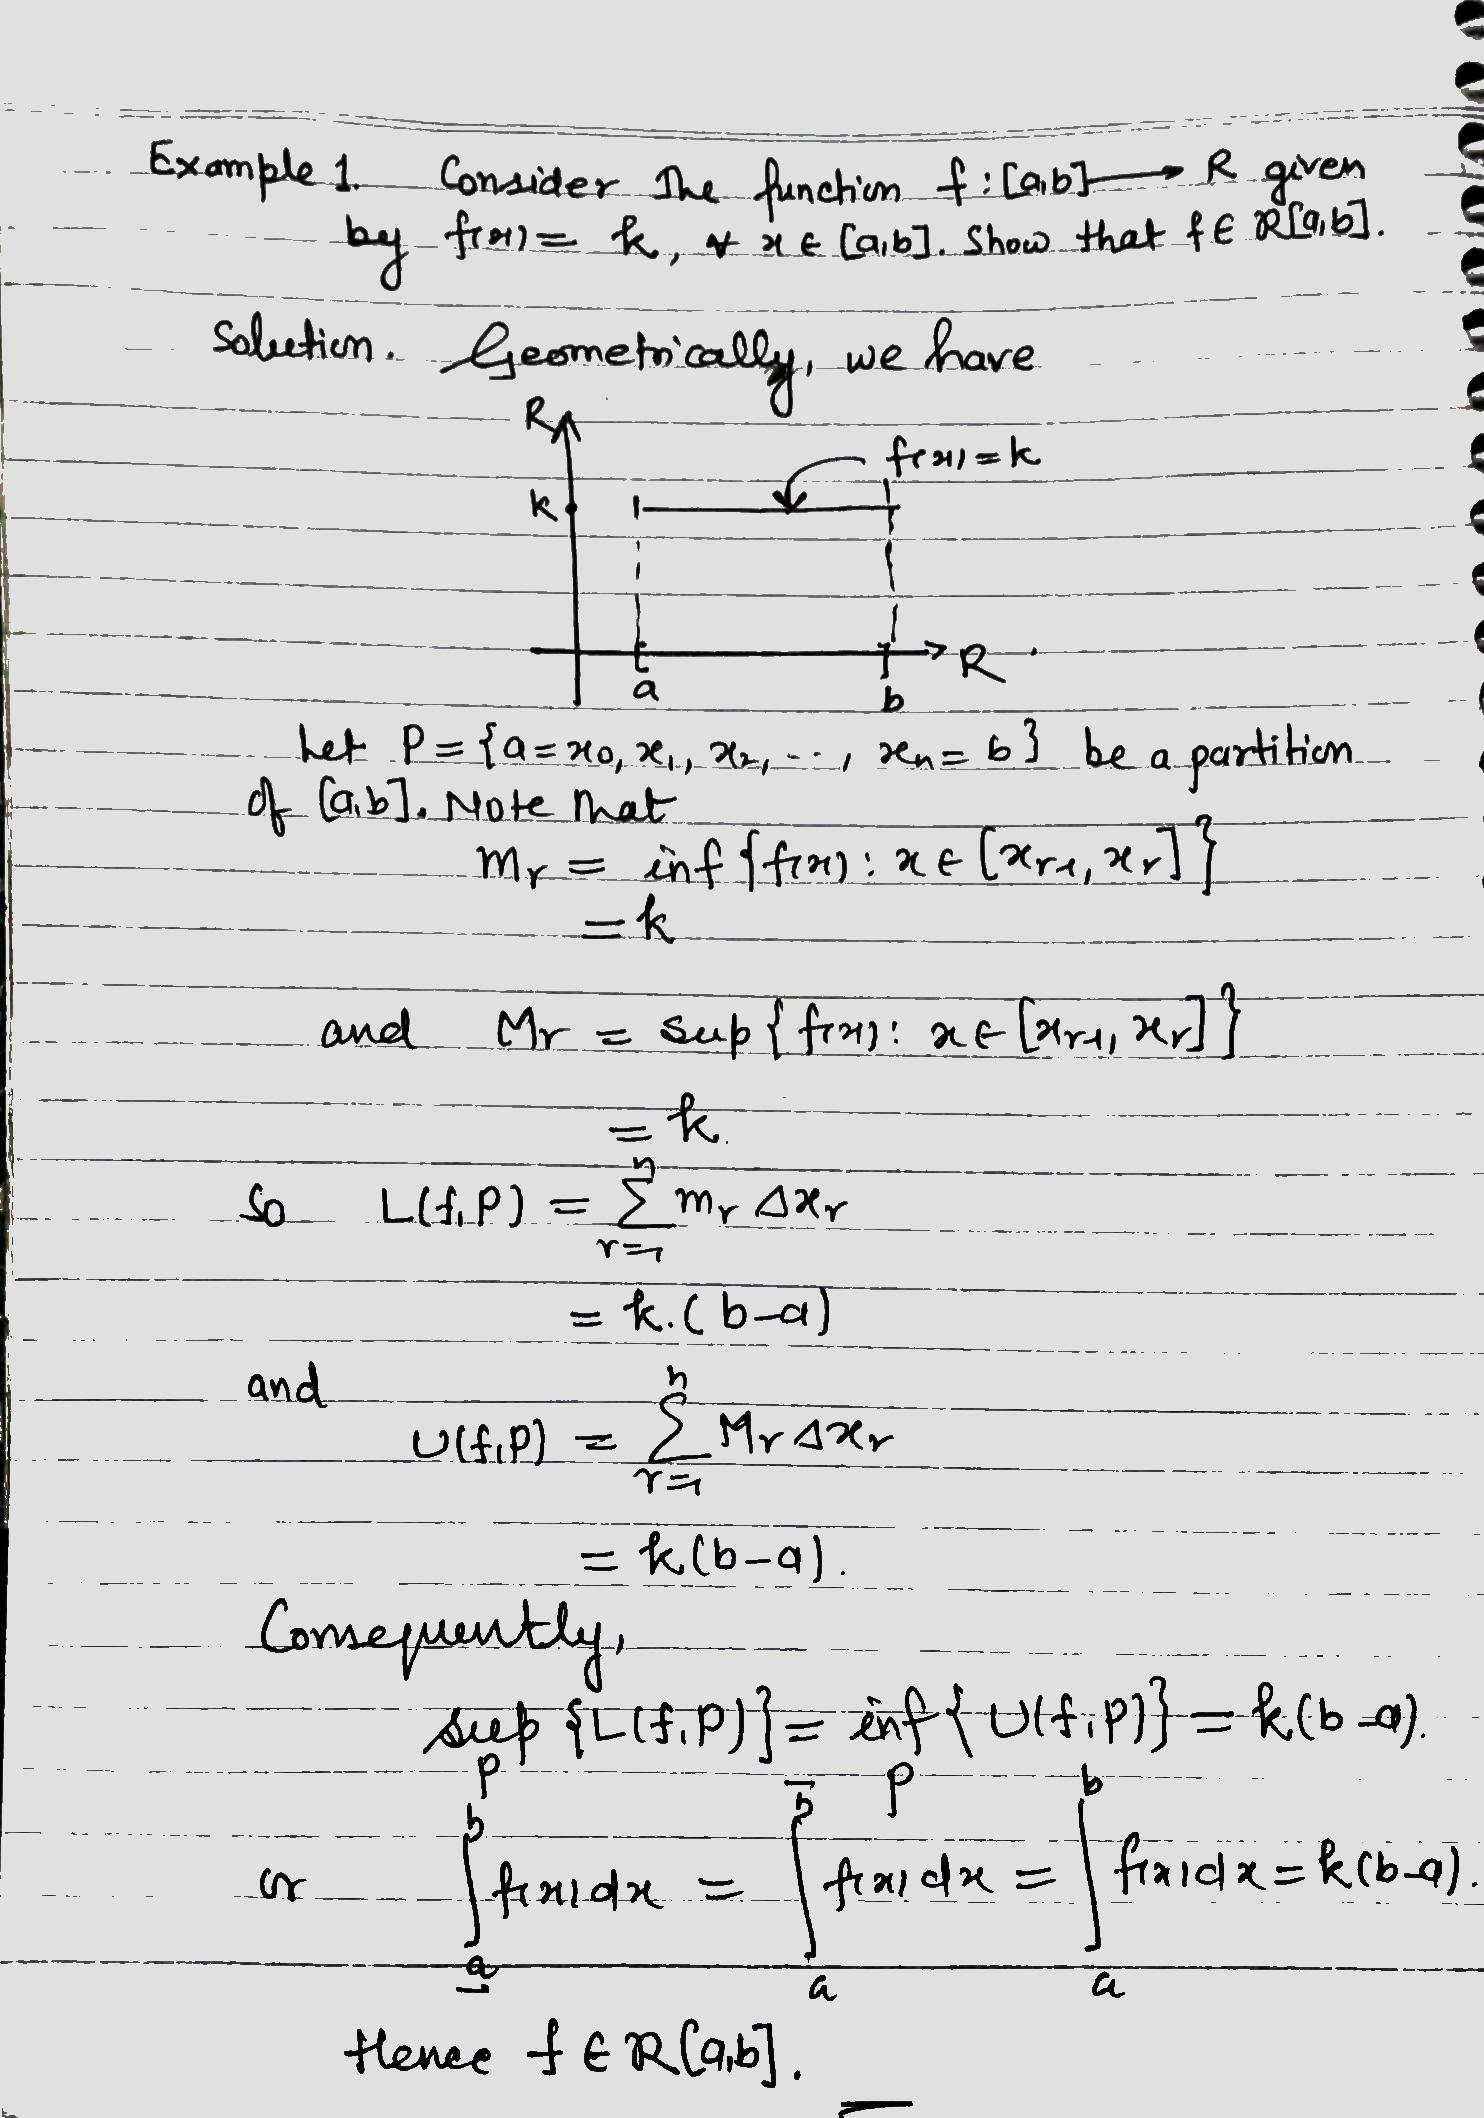 Example 1. Consider the function f : [a,b] → R given
by f(x) = k, ∀ x ∈ [a,b]. Show that f ∈ R[a,b].
Solution. Geometrically, we have
R
f(x) = k
k
R
a
b
Let P = {a = x₀, x₁, x₂, ..., xₙ = b} be a partition
of [a,b]. Note that
mᵣ = inf {f(x) : x ∈ [xᵣ₋₁, xᵣ]}
= k
and Mᵣ = sup {f(x) : x ∈ [xᵣ₋₁, xᵣ]}
= k.
So L(f,P) = ∑ᵣ₌₁ⁿ mᵣ Δxᵣ
= k.(b-a)
and
U(f,P) = ∑ᵣ₌₁ⁿ Mᵣ Δxᵣ
= k(b-a).
Consequently,
sup {L(f,P)} = inf {U(f,P)} = k(b-a).
P P
b b̅ b
or ∫ f(x)dx = ∫ f(x)dx = ∫ f(x)dx = k(b-a).
a̲ a a
Hence f ∈ R[a,b].